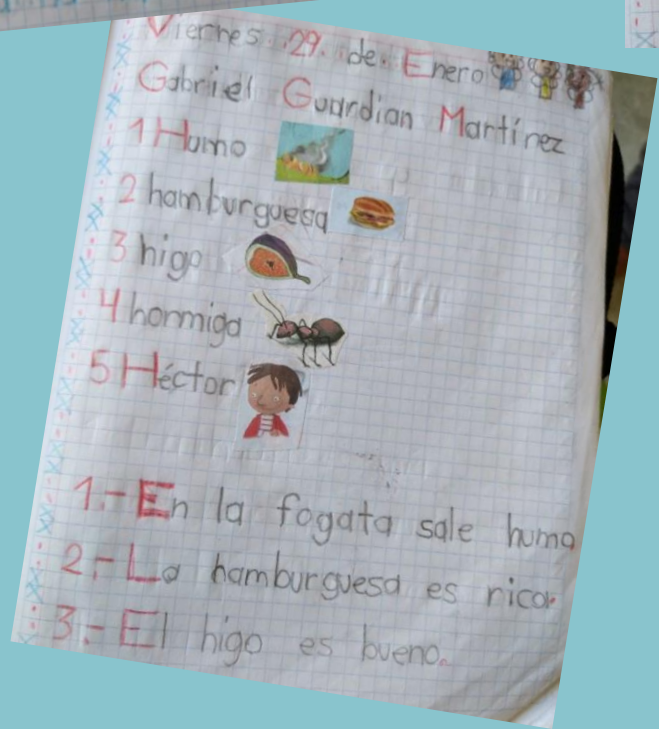 Viernes 29 de Enero
Gabriel Guardian Martínez
1 Humo
2 hamburguesa
3 higo
4 hormiga
5 Héctor
1.- En la fogata sale humo
2.- La hamburguesa es rica.
3.- El higo es bueno.